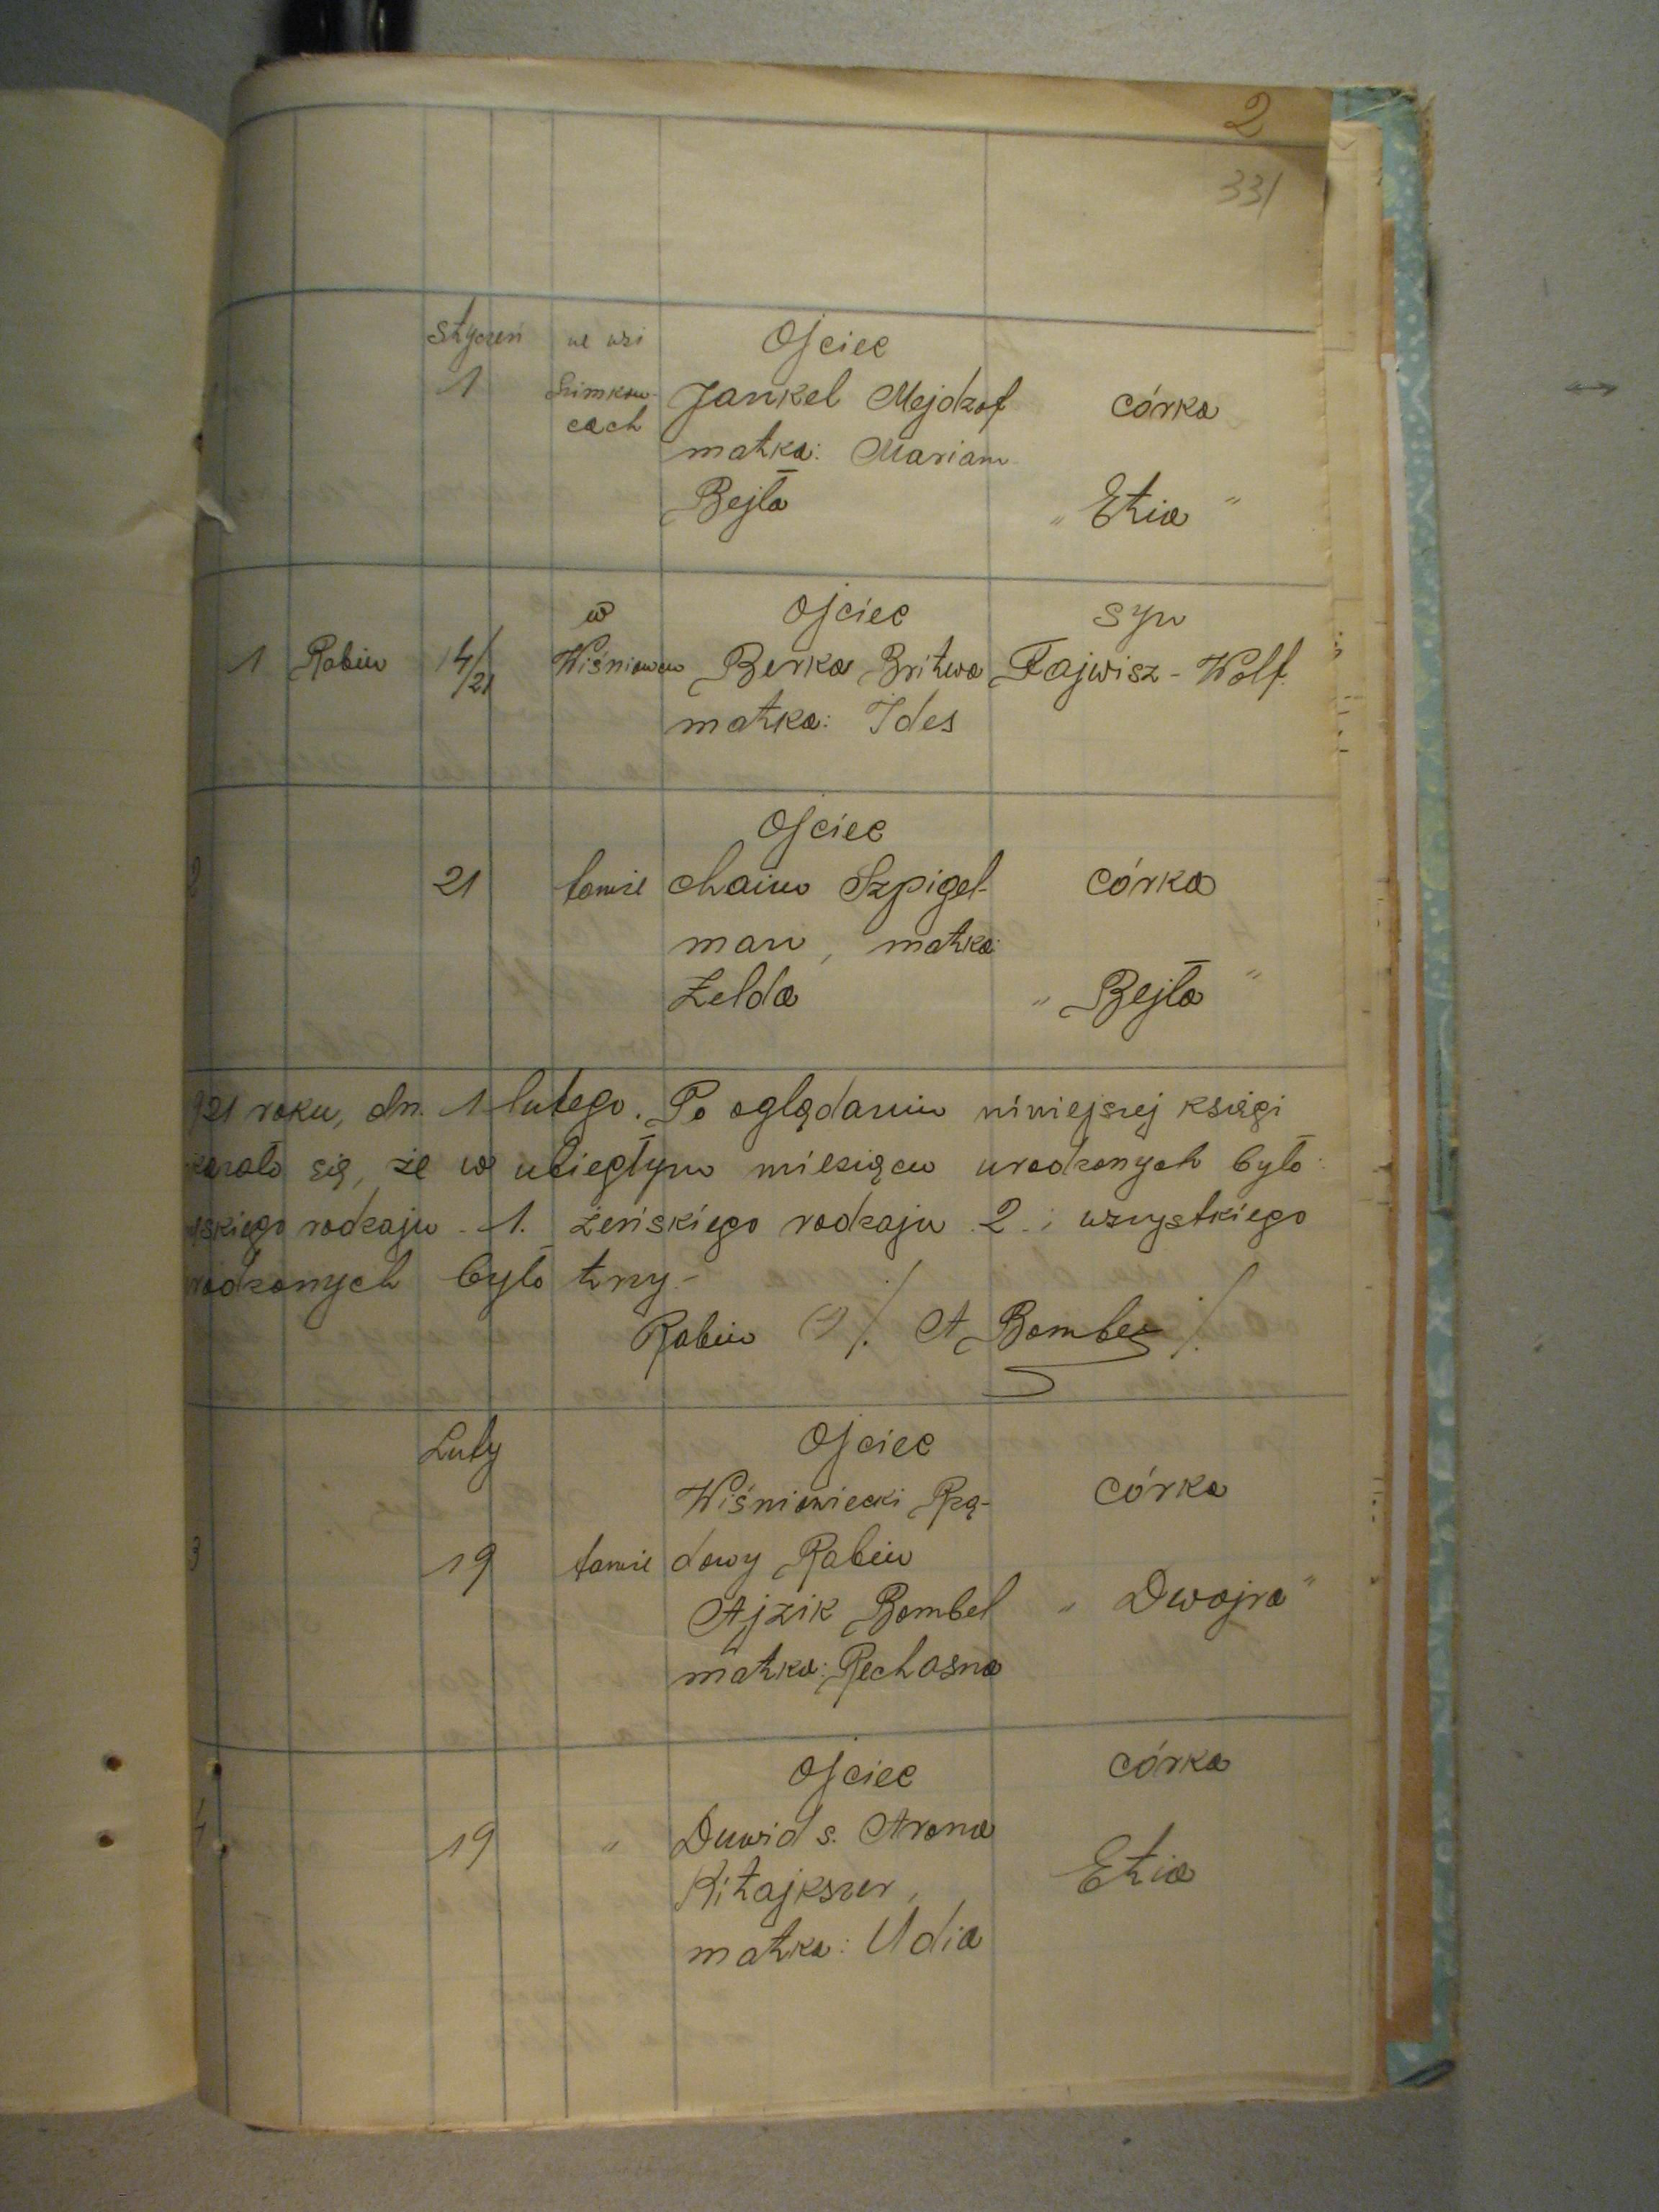 2
331
styczeń we wsi Ojciec
1 Szimkow- Jankel Mejdzof córka
cach matka: Mariam
Bejła „ Etia "
w Ojciec syn
1 Rabin 14/21 Wiśniowcu Berka Britwa Fajwisz - Wolf.
matka: Ides
Ojciec
2 21 tamże Chaim Szpigel- córka
man, matka:
Zelda „ Bejła "
921 roku, dn. 1 lutego. Po oglądaniu niniejszej księgi
kazało się, że w ubiegłym miesiącu urodzonych było:
skiego rodzaju - 1. żeńskiego rodzaju 2. i wszystkiego
rodzonych było trzy -
Rabin (-) /. A Bombel /.
Luty Ojciec
Wiśniowiecki Rzą- córka
3 19 tamże dowy Rabin
Ajzik Bombel „ Dwojra "
matka: Rechasna
Ojciec córka
4 19 " Duwid s. Arona
Kitajkszer, Etia
matka: Udia